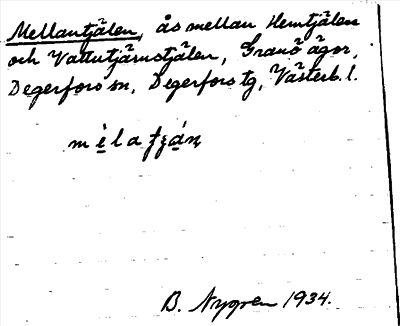 Mellantjälen, ås mellan Hemtjälen
och Vattutjärnstjälen, Granö ägor,
Degerfors sn, Degerfors tg, Västerb. l.
B. Nygren 1934.